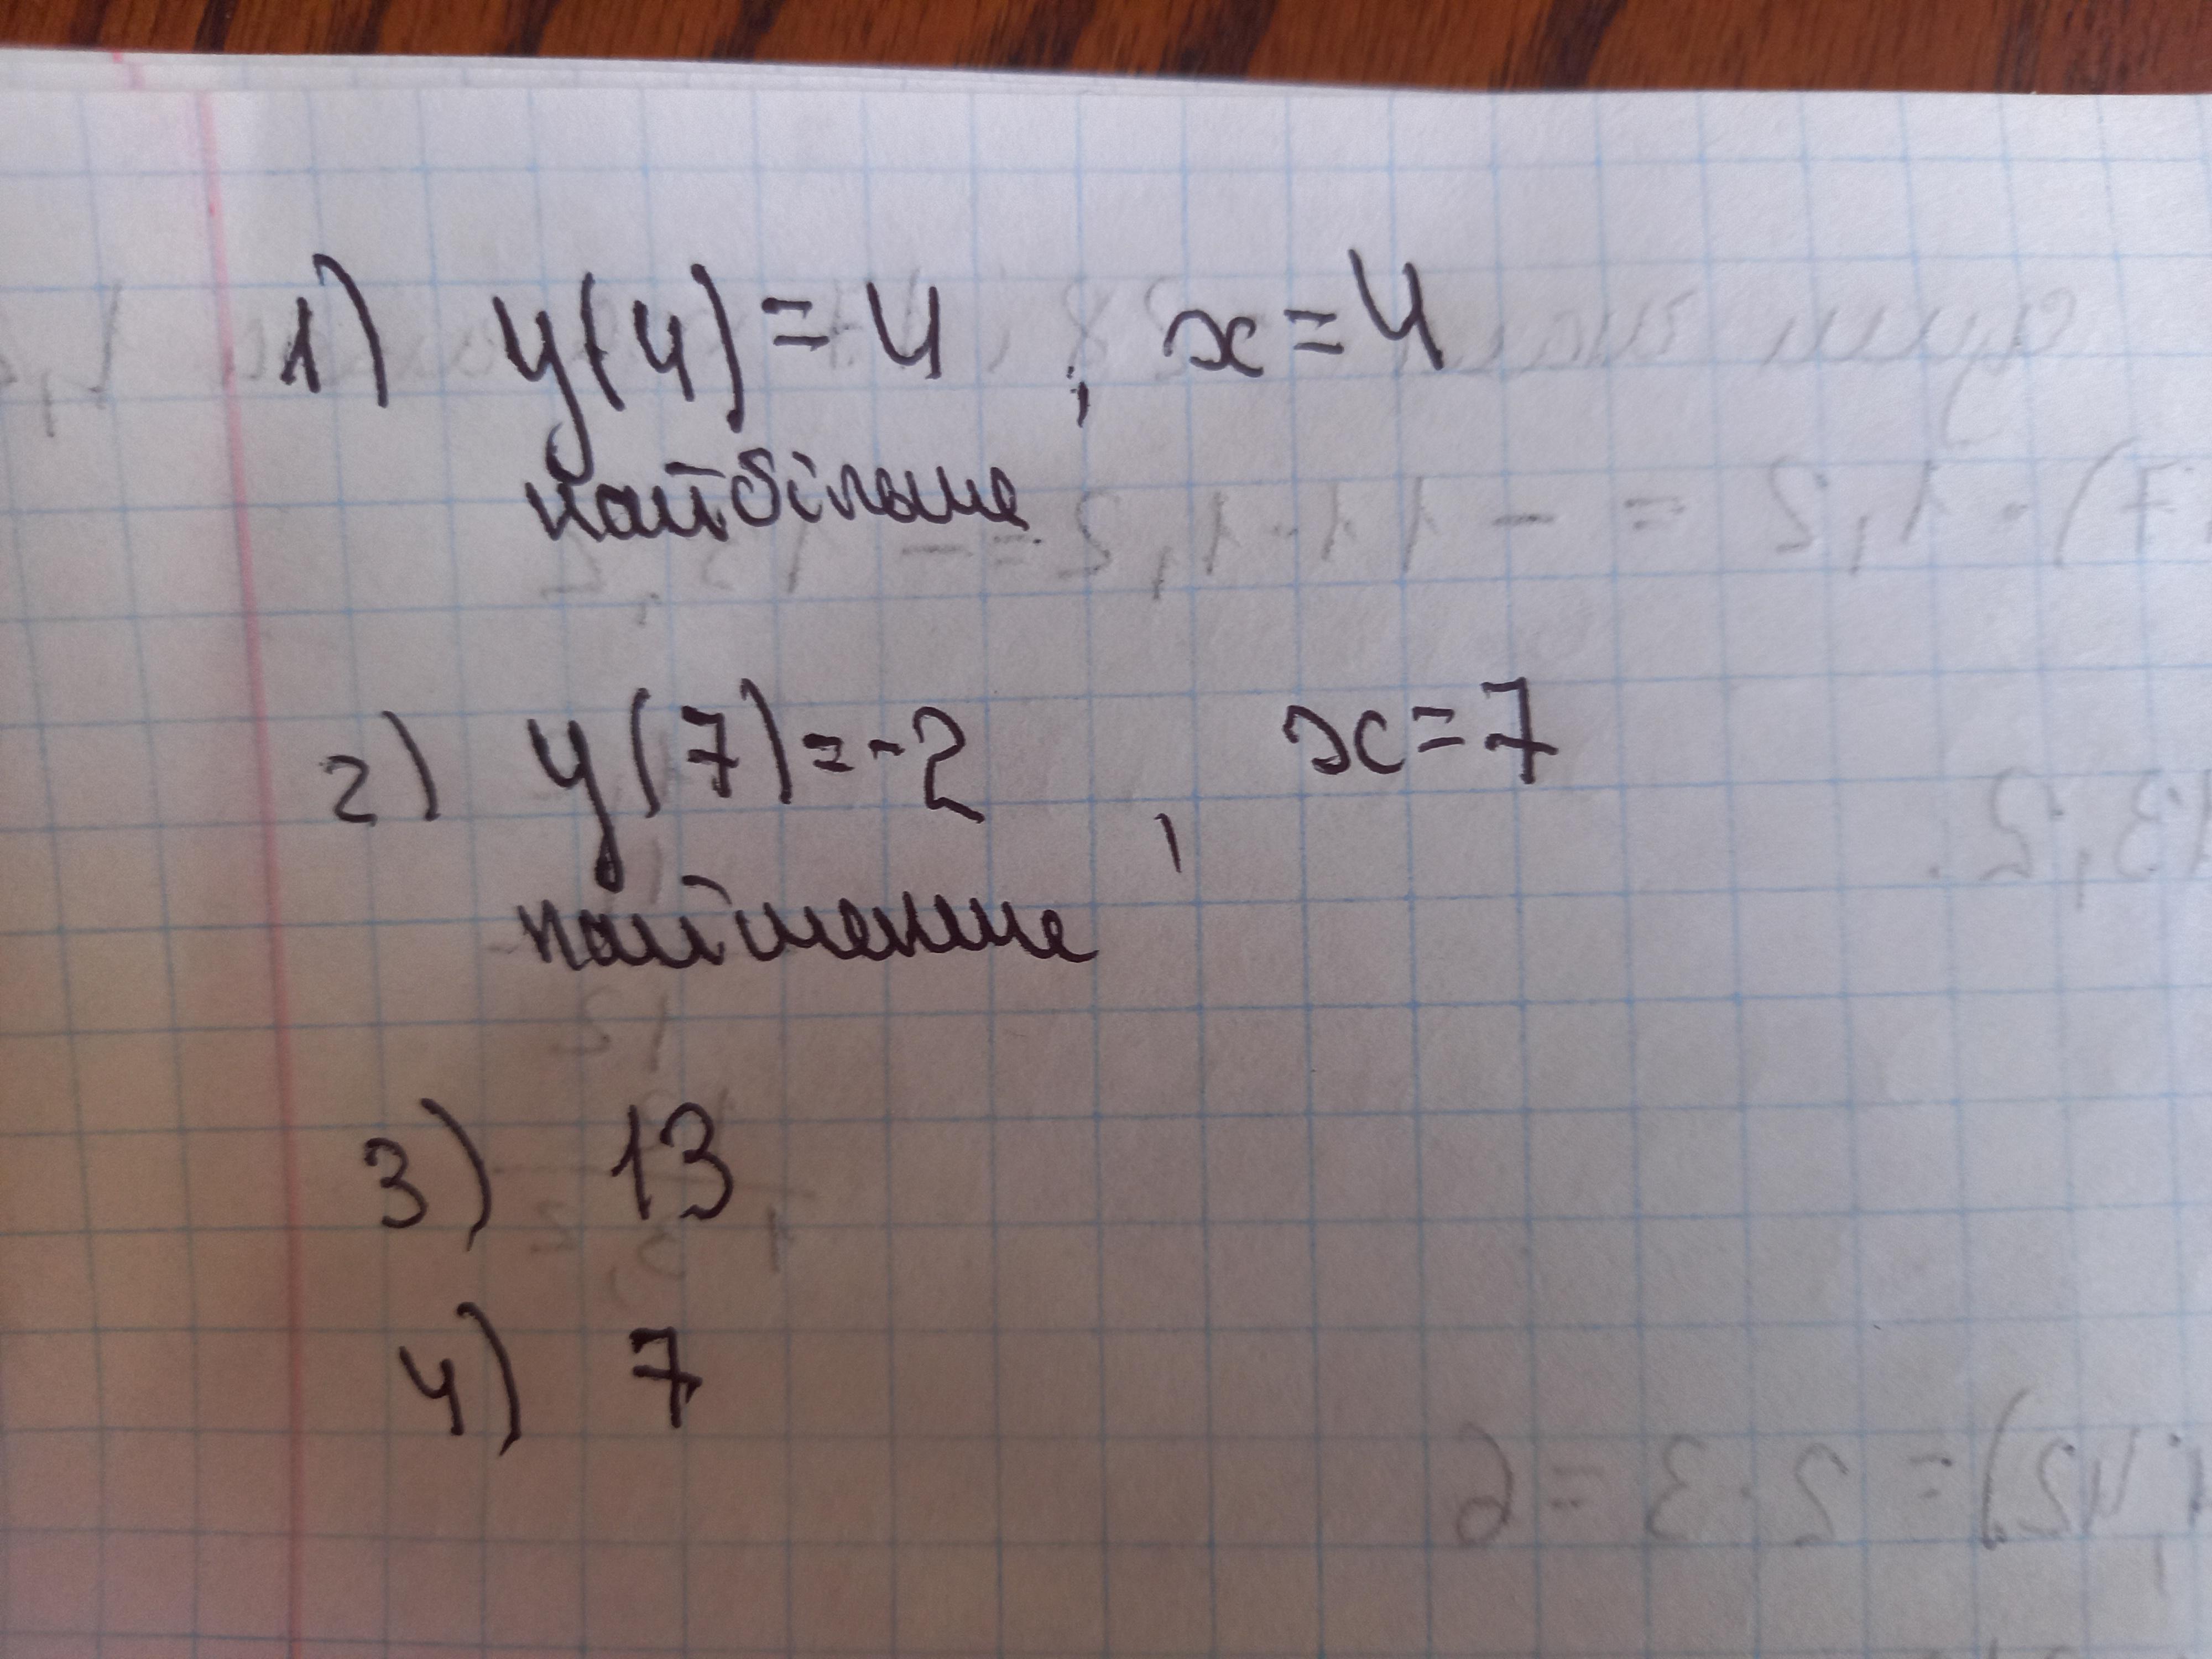 1) y(4) = 4 , x = 4
найбільше
2) y(7) = -2 , x = 7
найменше
3) 13
4) 7